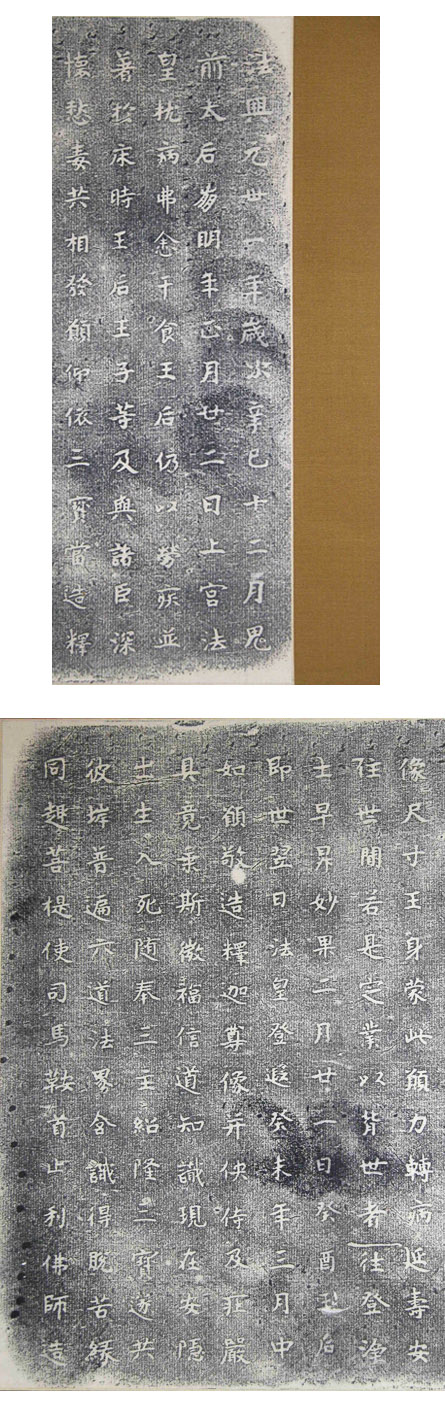 法興元丗一年歳次辛巳十二月鬼
前太后崩明年正月廿二日上宮法
皇枕病弗悆干食王后仍以勞疾並
著於床時王后王子等及與諸臣深
懐愁毒共相發願仰依三寳當造釋
像尺寸王身蒙此願力轉病延壽安
住世間若是定業以背世者往登浄
土早昇妙果二月廿一日癸酉王后
即世翌日法皇登遐癸未年三月中
如願敬造釋迦尊像并侠侍及荘嚴
具竟乗斯微福信道知識現在安隠
出生入死随奉三主紹隆三寳遂共
彼岸普遍六道法界含識得脱苦縁
同趣菩提使司馬鞍首止利佛師造